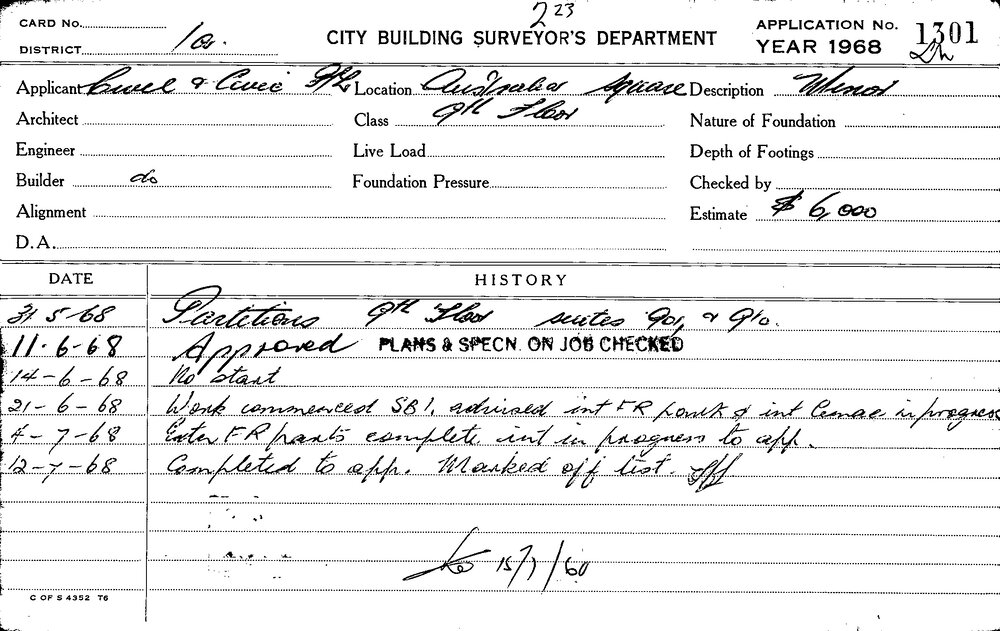 223
CARD No.
CITY BUILDING SURVEYOR'S DEPARTMENT
APPLICATION No. 1301
DISTRICT 1a.
YEAR 1968
Applicant Civil & Civic P/L Location Australia Square Description Minor
Architect Class 9th Floor Nature of Foundation
Engineer Live Load Depth of Footings
Builder do Foundation Pressure Checked by
Alignment Estimate $ 6,000
D.A.
DATE HISTORY
31-5-68 Partitions 9th Floor suites 901, & 910.
11-6-68 Approved PLANS & SPECN. ON JOB CHECKED
14-6-68 No start
21-6-68 Work commenced SBI, advised int FR & int in progress
4-7-68 FR parts complete, int in progress to app.
12-7-68 Completed to app. Marked off list.
15/7/60
C OF S 4352 T6